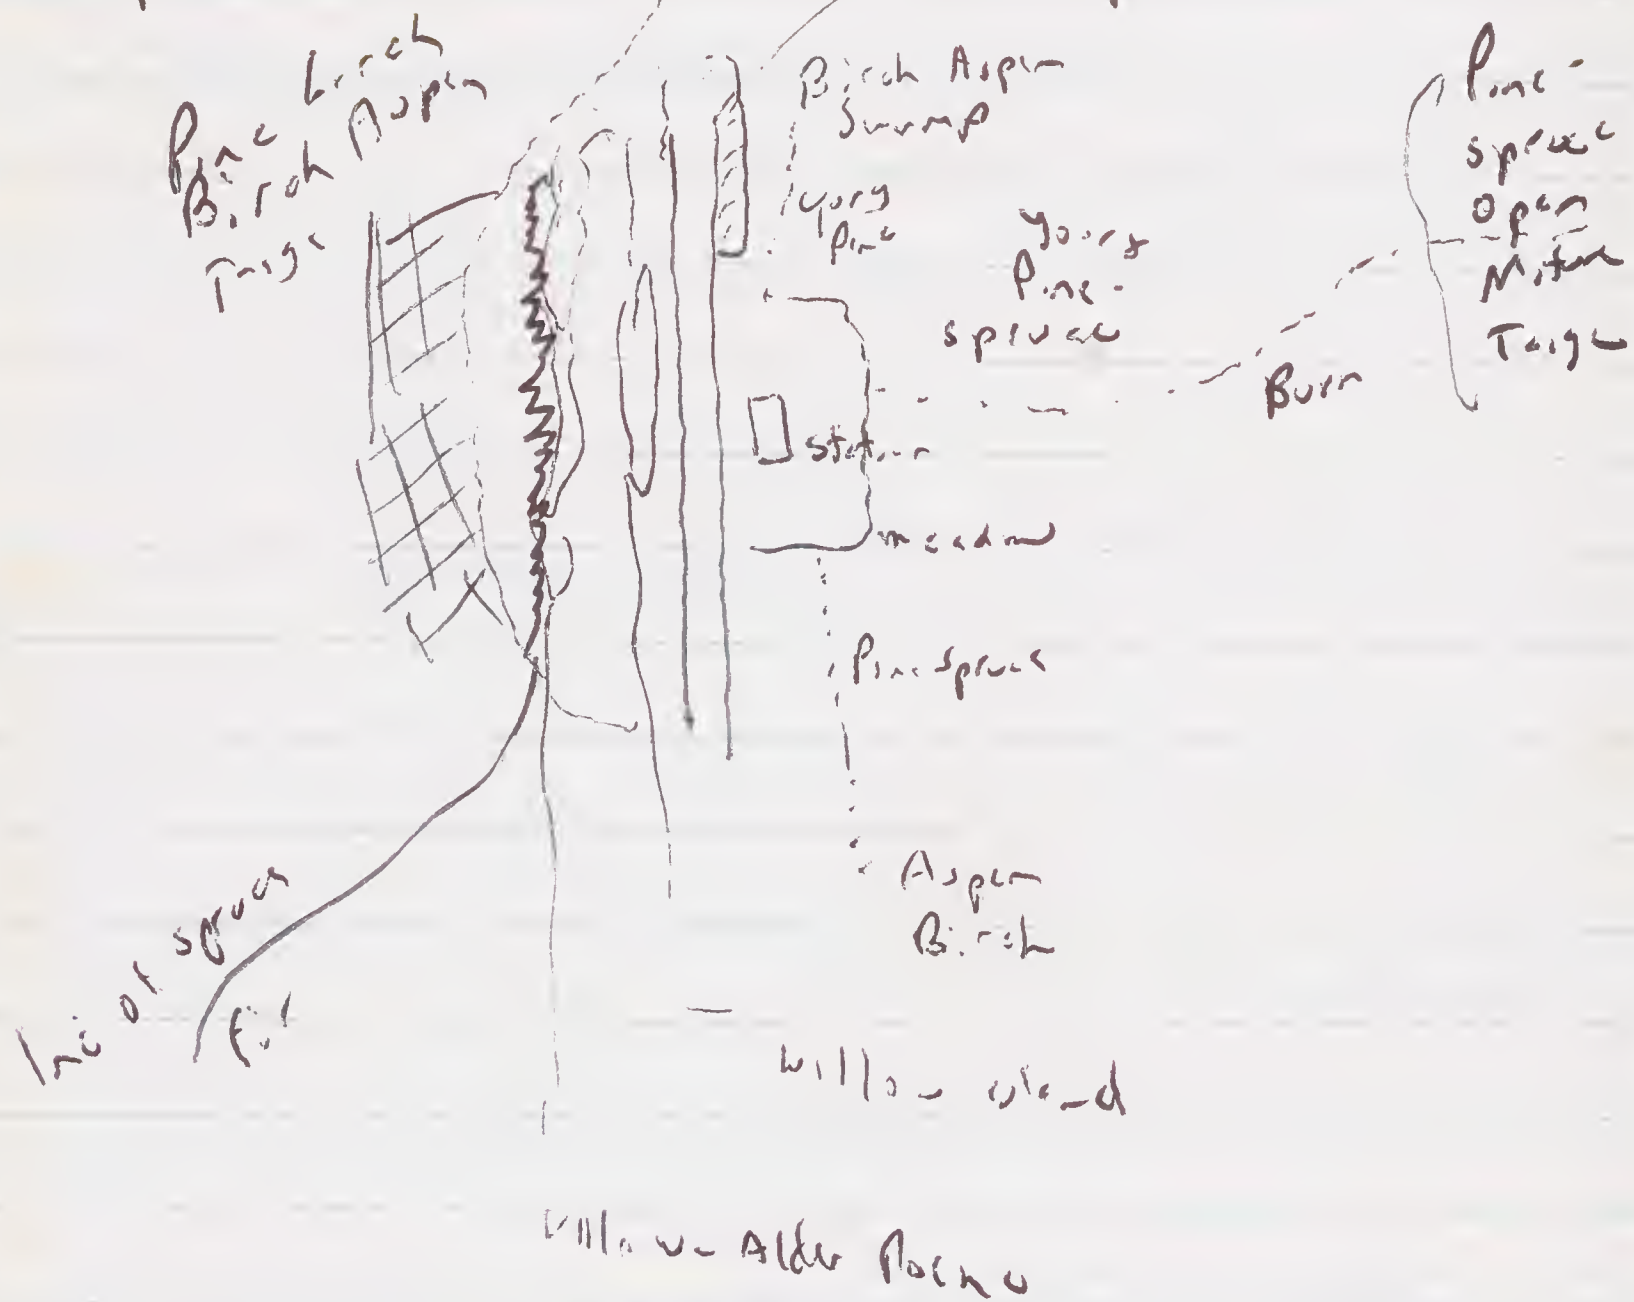 Larch
Pine Aspen
Birch
Taiga
Birch Aspen
Swamp
yong
Pine
Young
Pine-
spruce
Pine-
spruce
Open
Mature
Taiga
Burn
station
meadow
Pine spruce
Aspen
Birch
line of spruce
fir
Willow island
Willow - Alder